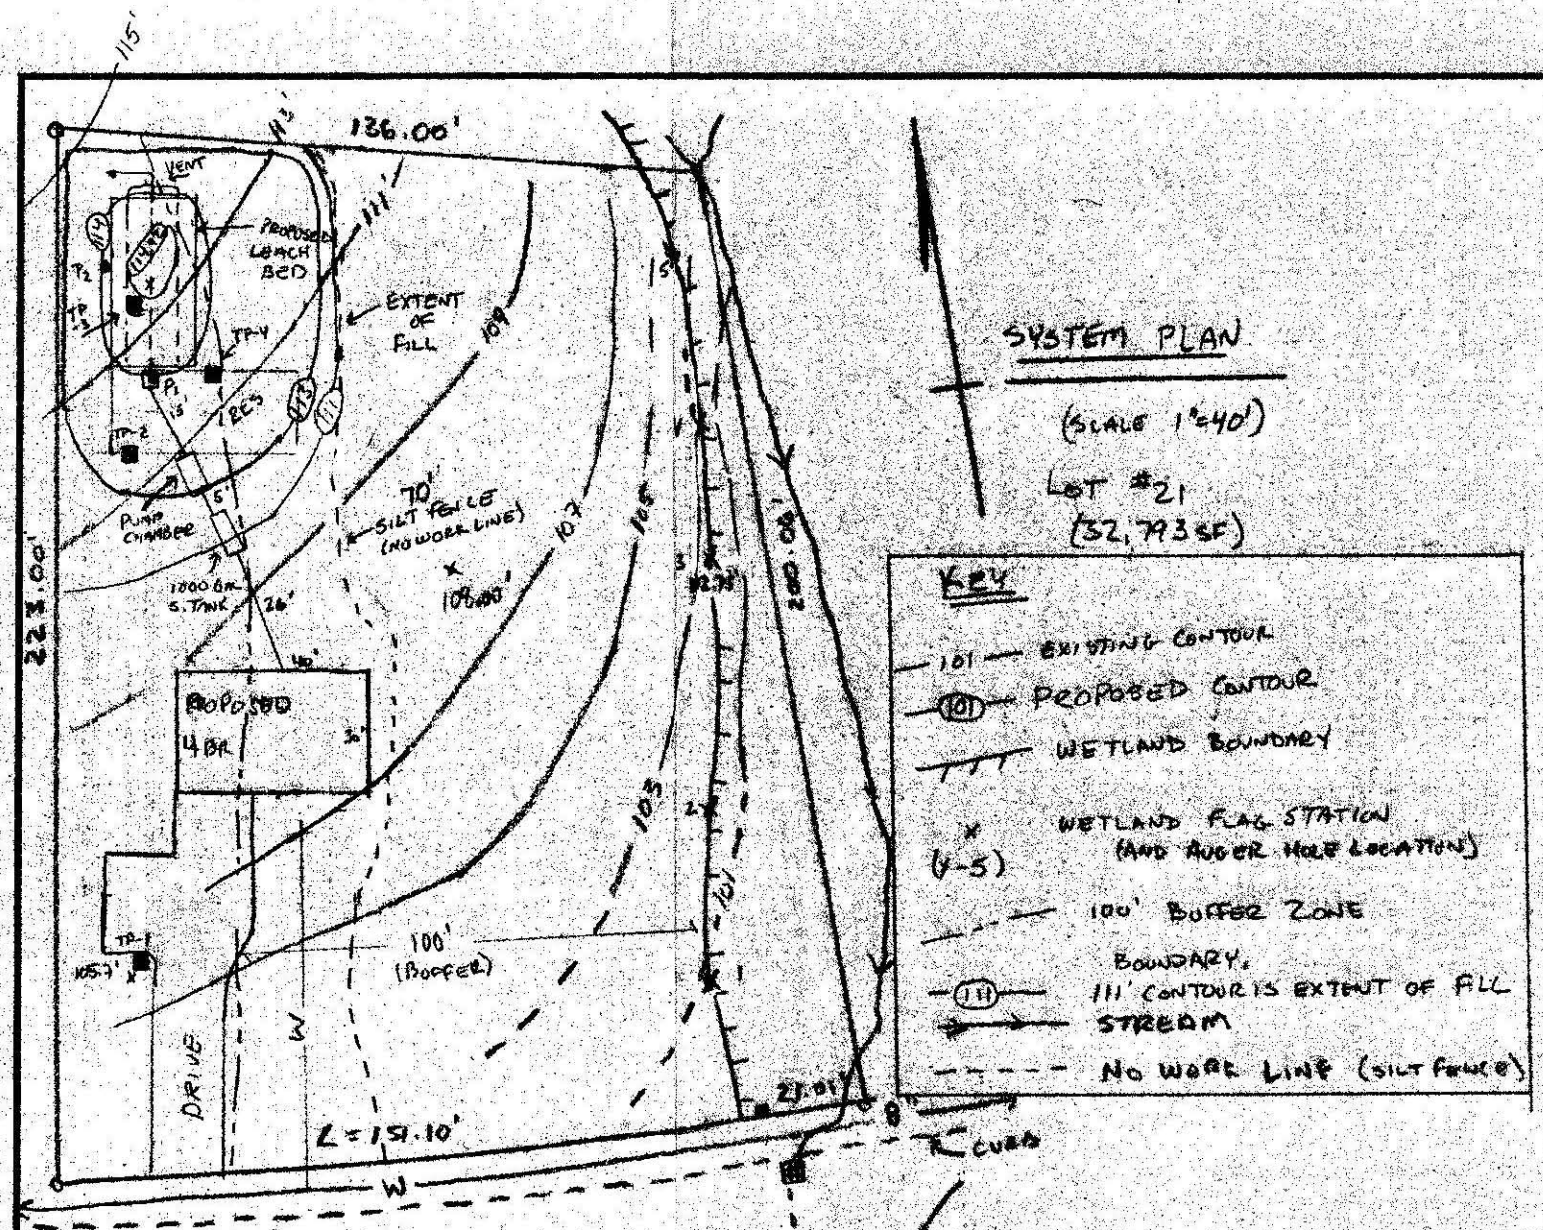 115'
113'
136.00'
111'
VENT
114
PROPOSED
LEACH
BED
P2
TP
-3
EXTENT
OF
FILL
109
TP-4
P1
15'
RES
113
111
TP-2
5'
PUMP
CHAMBER
70'
SILT FENCE
(NO WORK LINE)
107
105
223.00'
S. TANK
26'
x
108.00'
200.00'
40'
PROPOSED
4 BR
30'
103
101
100'
(BUFFER)
TP-1
105.7'
x
DRIVE
W
L = 151.10'
21.01'
8"
W
CURB
SYSTEM PLAN
(SCALE 1"=40')
LOT #21
(32,793 SF)
KEY
101 EXISTING CONTOUR
101 PROPOSED CONTOUR
WETLAND BOUNDARY
x WETLAND FLAG STATION
(X-5) (AND AUGER HOLE LOCATION)
100' BUFFER ZONE
BOUNDARY.
111 111' CONTOUR IS EXTENT OF FILL
STREAM
NO WORK LINE (SILT FENCE)